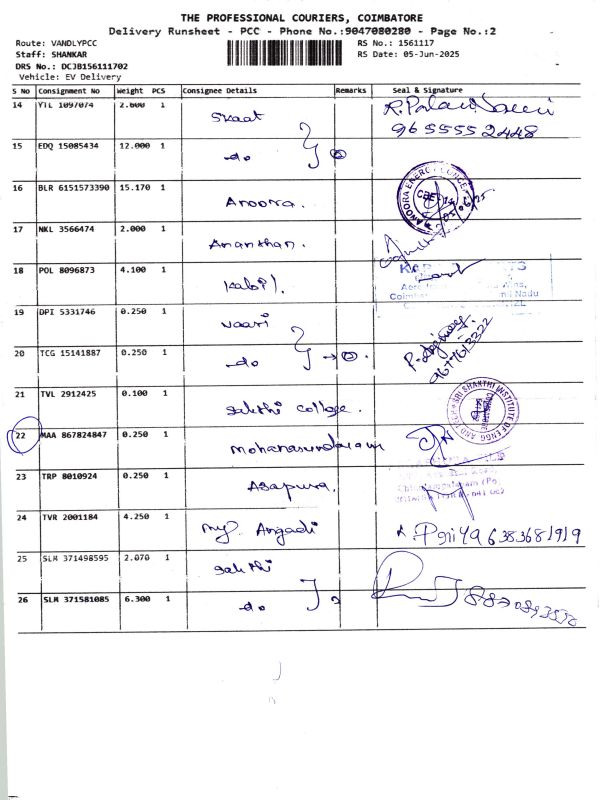 THE PROFESSIONAL COURIERS, COIMBATORE
Delivery Runsheet - PCC - Phone No.:9047080280 - Page No.:2
Route: VANDLYPCC
RS No.: 1561117
Staff: SHANKAR
RS Date: 05-Jun-2025
DRS No.: DCJB156111702
Vehicle: EV Delivery
S No Consignment No Weight PCS Consignee Details Remarks Seal & Signature
14 YTL 1097074 2.600 1 Skaat
9655552448
15 EDQ 15085434 12.000 1 -do
16 BLR 6151573390 15.170 1 Anoora.
17 NKL 3566474 2.000 1 Ananthan.
18 POL 8096873 4.100 1 Kabil.
19 DPI 5331746 0.250 1 Vaari
20 TCG 15141887 0.250 1 -do
21 TVL 2912425 0.100 1 Sakthi college.
SRI SHAKTHI INSTITUTE OF ENGG AND TECH
22 MAA 867824847 0.250 1 Mohanasundaram
23 TRP 8010924 0.250 1 Asapura.
24 TVR 2001184 4.250 1 my Angadi Priya 6383681919
25 SLM 371498595 2.070 1 Sakthi
26 SLM 371581085 6.300 1 -do